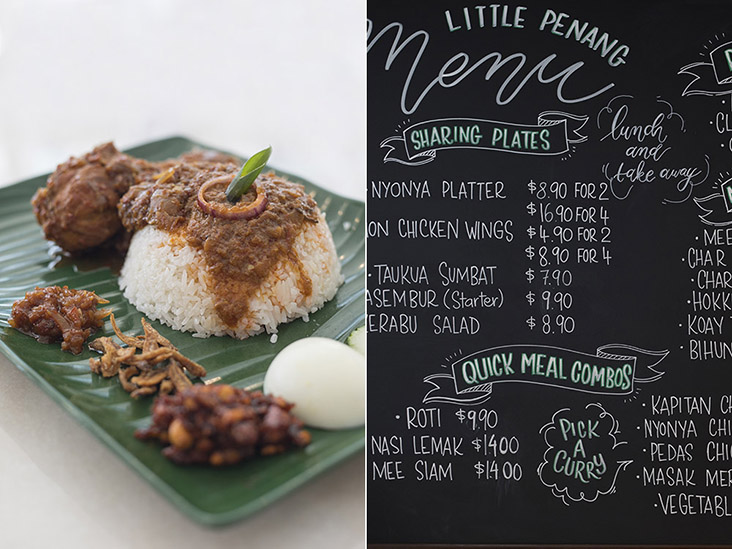 LITTLE PENANG
Menu
SHARING PLATES
lunch
and
take away
NYONYA PLATTER $8.90 FOR 2
$16.90 FOR 4
ON CHICKEN WINGS $4.90 FOR 2
$8.90 FOR 4
· TAUKUA SUMBAT $7.90
ASEMBUR (Starter) $9.90
ERABU SALAD $8.90
QUICK MEAL COMBOS
· ROTI $9.90
NASI LEMAK $14.00
MEE SIAM $14.00
PICK
A
CURRY
· MEE
· CHAR
· CHAR
· HOKK
· KOAY T
· BIHUN
· KAPITAN CH
· NYONYA CHI
· PEDAS CHI
· MASAK MER
· VEGETABL